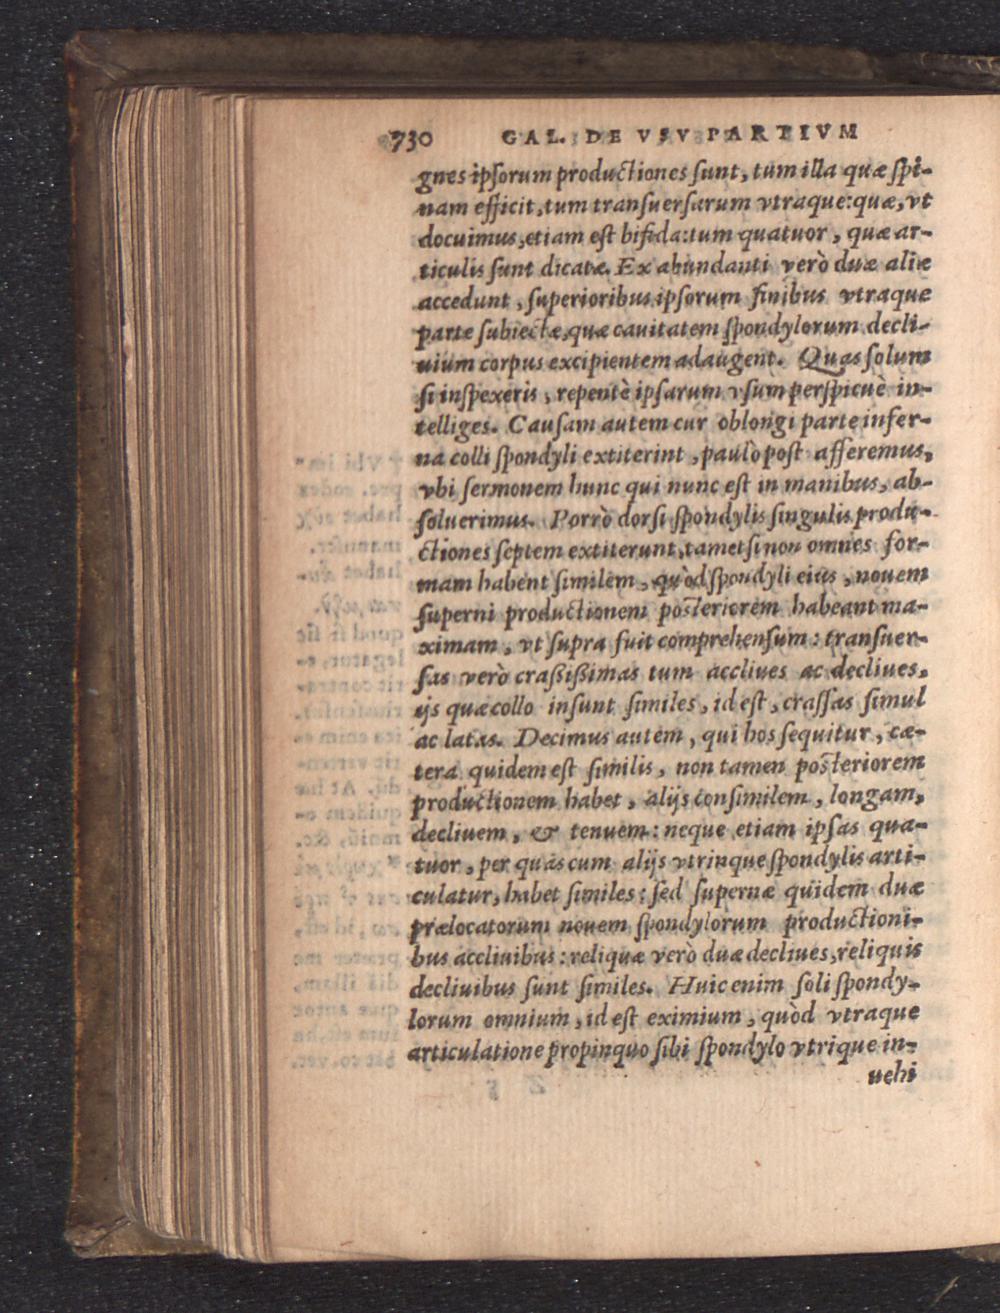 730 GAL. DE VSV PARTIVM
gnes ipſorum productiones ſunt, tum illa quæ ſpi-
nam efficit, tum tranſuerſarum vtraque: quæ, vt
docuimus, etiam eſt bifida: tum quatuor, quæ ar-
ticulis ſunt dicatæ. Ex abundanti verò duæ aliæ
accedunt, ſuperioribus ipſorum finibus vtraque
parte ſubiectæ, quæ cauitatem ſpondylorum decli-
uium corpus excipientem adaugent. Quas ſolum
ſi inſpexeris, repentè ipſarum vſum perſpicuè in-
telliges. Cauſam autem cur oblongi parte infer-
na colli ſpondyli extiterint, paulò poſt afferemus,
vbi ſermonem hunc qui nunc eſt in manibus, ab-
ſoluerimus. Porrò dorſi ſpondylis ſingulis produ-
ctiones ſeptem extiterunt, tametſi non omnes for-
mam habent ſimilem, quòd ſpondyli eius, nouem
ſuperni productionem poſteriorem habeant ma-
ximam, vt ſupra fuit comprehenſum: tranſuer-
ſas verò craſsiſsimas tum accliues ac decliues,
ijs quæ collo inſunt ſimiles, id eſt, craſſas ſimul
ac latas. Decimus autem, qui hos ſequitur, cæ-
tera quidem eſt ſimilis, non tamen poſteriorem
productionem habet, alijs conſimilem, longam,
decliuem, & tenuem: neque etiam ipſas qua-
tuor, per quas cum alijs vtrinque ſpondylis arti-
culatur, habet ſimiles: ſed ſupernæ quidem duæ
prælocatorum nouem ſpondylorum productioni-
bus accliuibus: reliquæ verò duæ decliues, reliquis
decliuibus ſunt ſimiles. Huic enim ſoli ſpondy-
lorum omnium, id eſt eximium, quòd vtraque
articulatione propinquo ſibi ſpondylo vtrique in-
uehi